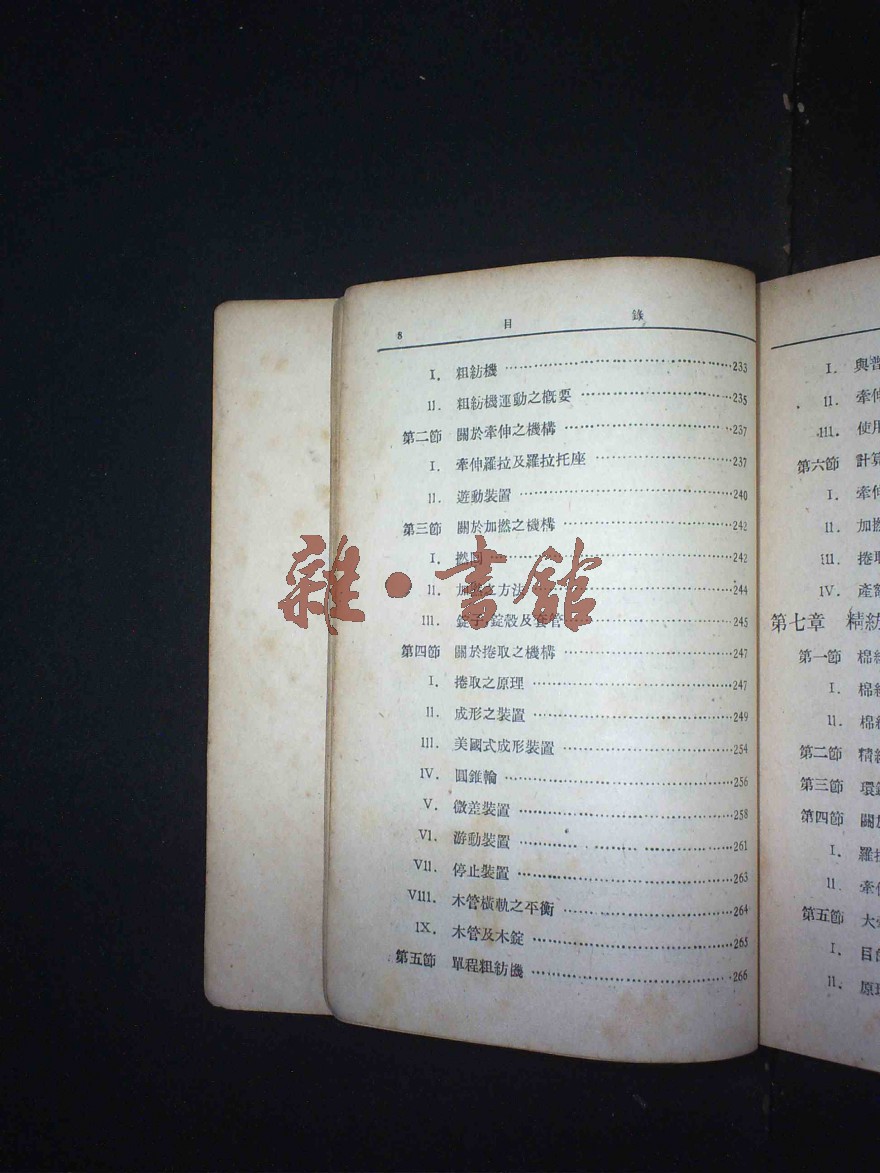 8 目 錄
I. 粗紡機 233
II. 粗紡機運動之概要 235
第二節 關於牽伸之機構 237
I. 牽伸羅拉及羅拉托座 237
II. 遊動裝置 240
第三節 關於加撚之機構 242
I. 撚 242
II. 加撚之方法 244
III. 錠子,錠殼及套管 245
第四節 關於捲取之機構 247
I. 捲取之原理 247
II. 成形之裝置 249
III. 美國式成形裝置 254
IV. 圓錐輪 256
V. 微差裝置 258
VI. 游動裝置 261
VII. 停止裝置 263
VIII. 木管橫軌之平衡 264
IX. 木管及木錠 265
第五節 單程粗紡機 266
I. 與普
II. 牽伸
III. 使用
第六節 計算
I. 牽伸
II. 加撚
III. 捲取
IV. 產額
第七章 精紡
第一節 棉
I. 棉
II. 棉
第二節 精
第三節 環
第四節 關於
I. 羅拉
II. 牽伸
第五節 大
I. 目的
II. 原理
雜·書館